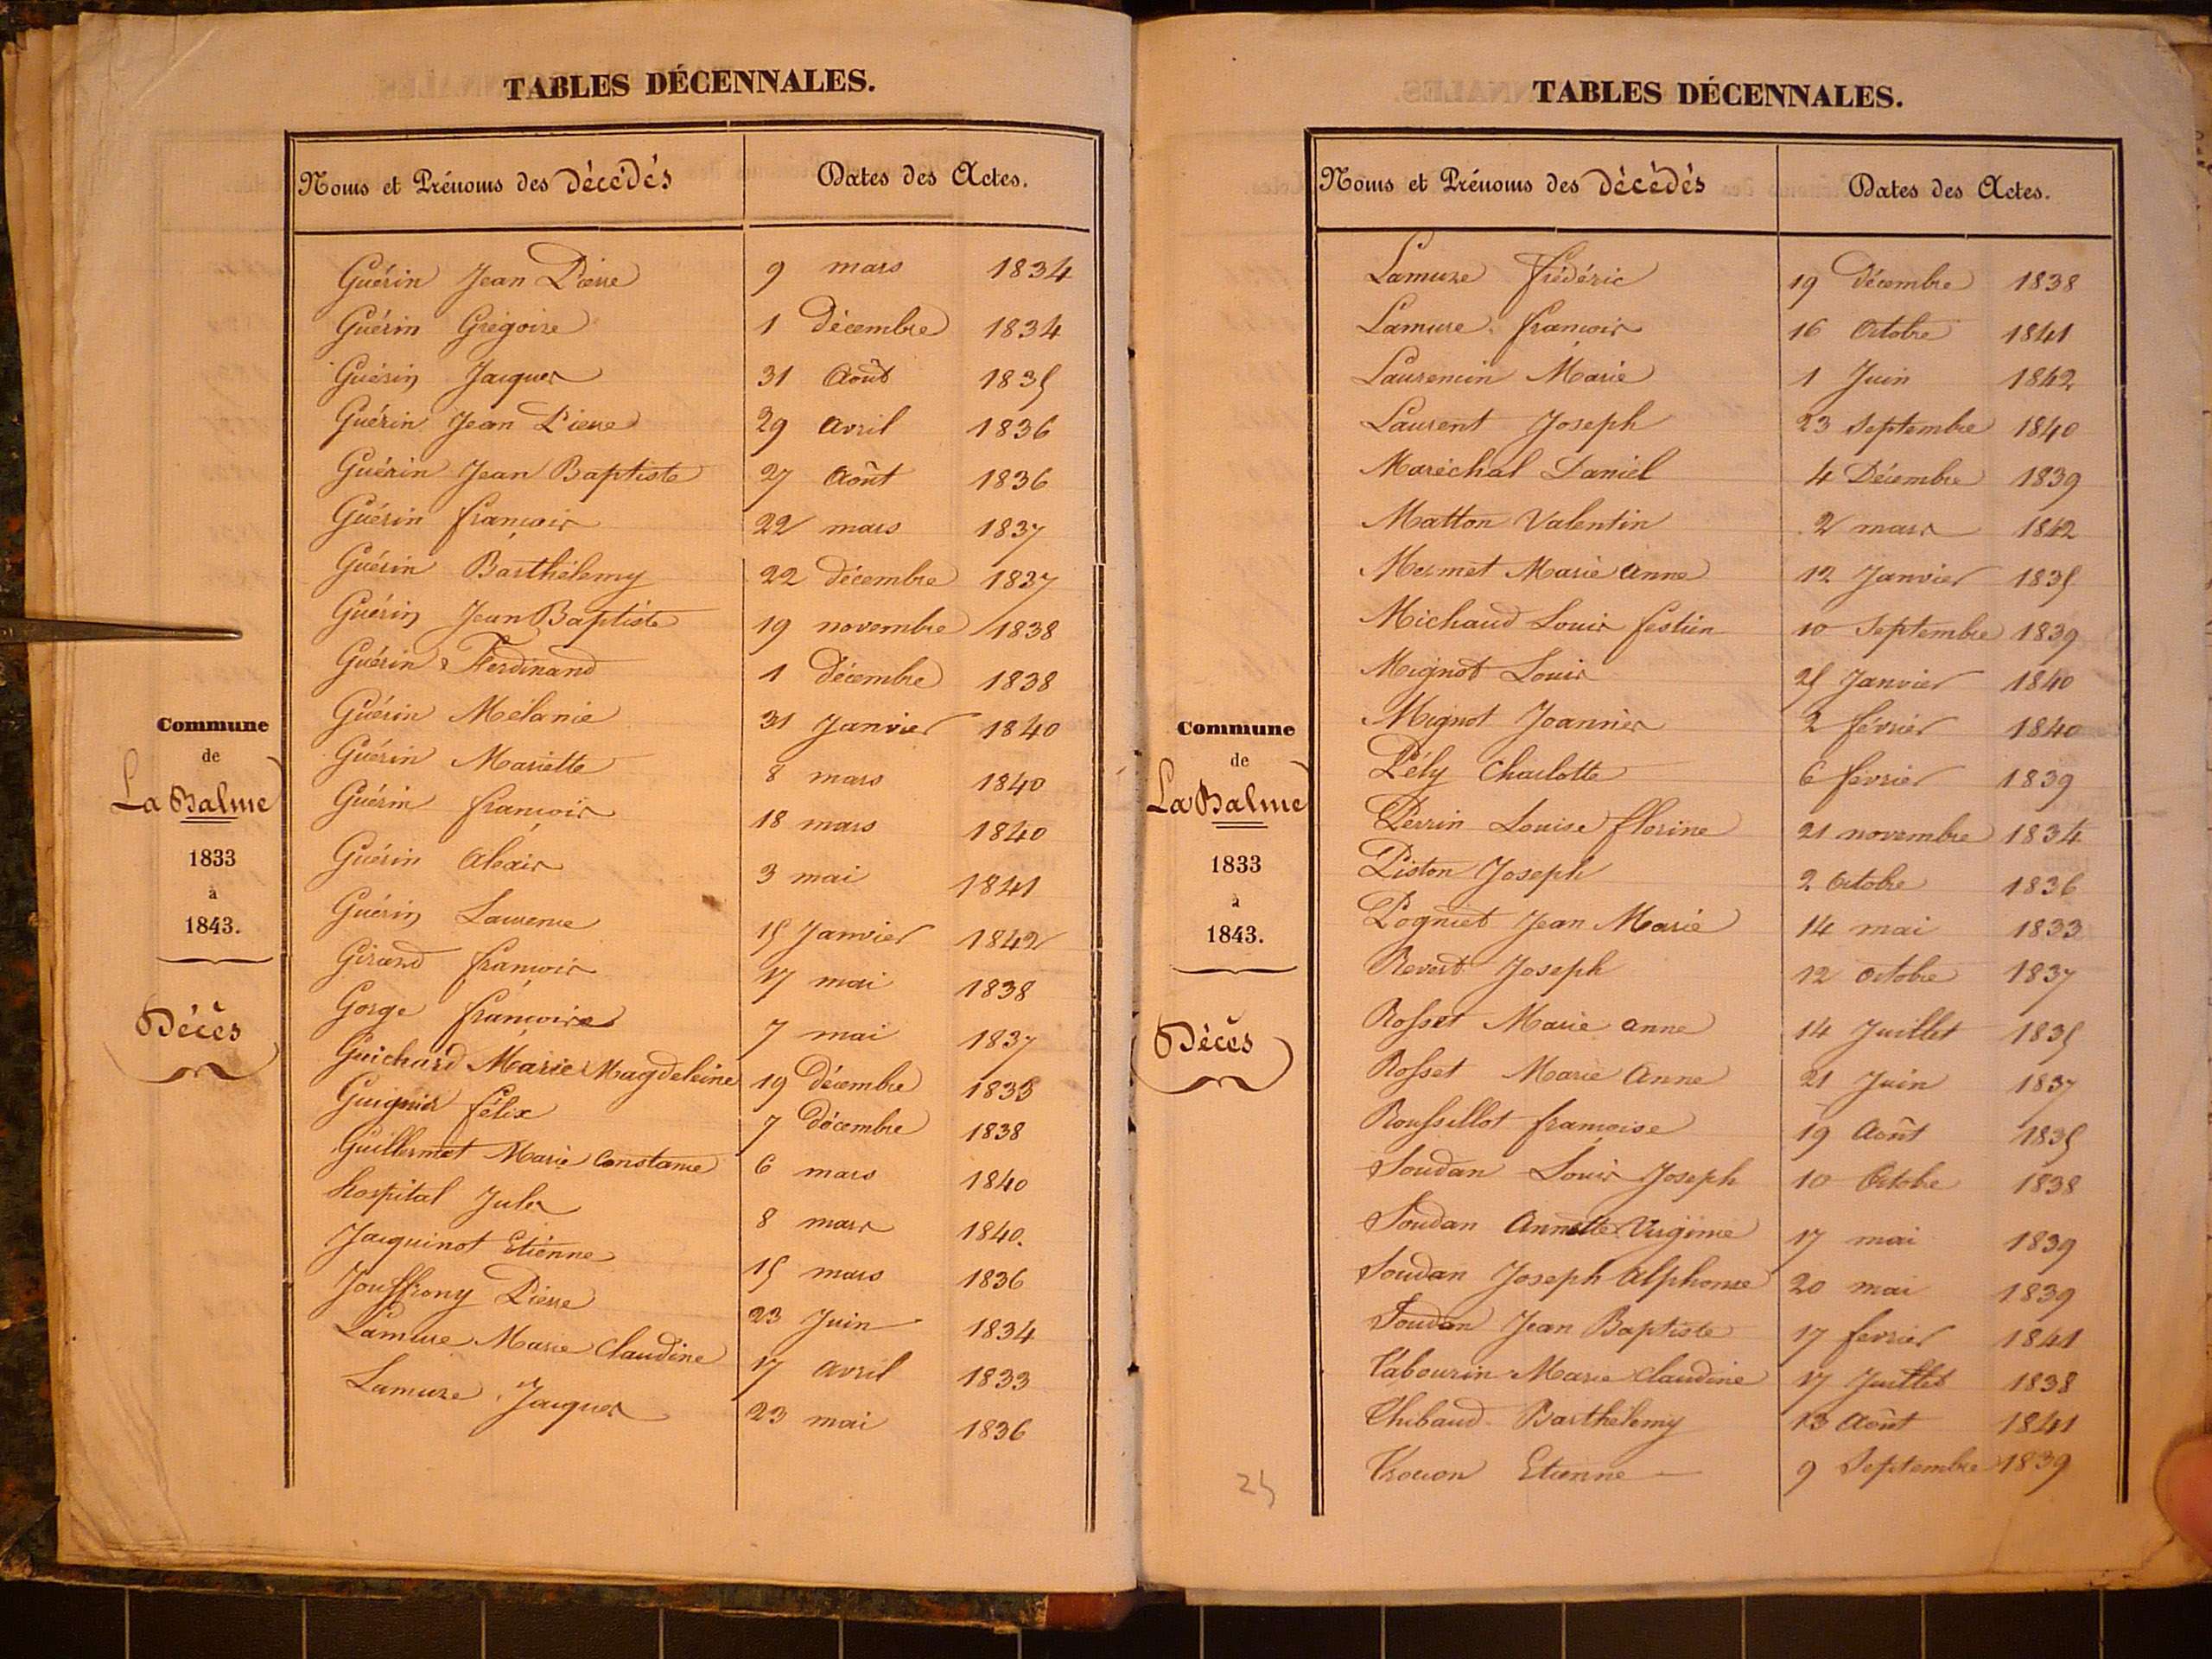 TABLES DÉCENNALES.
Noms et Prénoms des Décédés Dates des Actes.
Guérin Jean Pierre 9 mars 1834
Guérin Grégoire 1 décembre 1834
Guérin Jacques 31 Août 1835
Guérin Jean Pierre 29 avril 1836
Guérin Jean Baptiste 27 Août 1836
Guérin françois 22 mars 1837
Guérin Barthélemy 22 décembre 1837
Guérin Jean Baptiste 19 novembre 1838
Guérin Ferdinand 1 décembre 1838
Guérin Mélanie 31 Janvier 1840
Guérin Mariette 8 mars 1840
Guérin françois 18 mars 1840
Guérin 3 mai 1841
Guérin Laurence 15 Janvier 1842
Girand françois 17 mai 1838
Gorge françoise 7 mai 1837
Guichard Marie Magdeleine 19 décembre 1835
félix 7 décembre 1838
Guillermet Marie Constance 6 mars 1840
hospital Jules 8 mars 1840.
Jacquinot Etienne 15 mars 1836
Jouffrony Pierre 23 Juin 1834
Lamure Marie Claudine 17 avril 1833
Lamure Jacques 23 mai 1836
Commune
de
La Balme
1833
à
1843.
Décès
TABLES DÉCENNALES.
Noms et Prénoms des Décédés Dates des Actes.
Lamure frédéric 19 décembre 1838
Lamure françois 16 Octobre 1841
Laurencin Marie 1 Juin 1842
Laurent Joseph 23 Septembre 1840
Maréchal Daniel 4 Décembre 1839
Matton Valentin 2 mars 1842
Mermet Marie Anne 12 Janvier 1835
Michaud Louis festin 10 Septembre 1839
Mignot Louis 25 Janvier 1840
Mignot Joannier 2 février 1840
Pély Charlotte 6 fevrier 1839
Perrin Louise florine 21 novembre 1834
Piston Joseph 2 Octobre 1836
Pogniet Jean Marie 14 mai 1833
Revert Joseph 12 octobre 1837
Rosset Marie anne 14 Juillet 1835
Rosset Marie Anne 21 Juin 1837
Roussillot françoise 19 Août 1835
Soudan Louis Joseph 10 Octobre 1838
Soudan Annette Virginie 17 mai 1839
Soudan Joseph Alphonse 20 mai 1839
Soudan Jean Baptiste 17 fevrier 1841
Tabourin Marie Claudine 17 Juillet 1838
Thibaud Barthélemy 13 Août 1841
Trouon Etienne 9 Septembre 1839
Commune
de
La Balme
1833
à
1843.
Décès
25